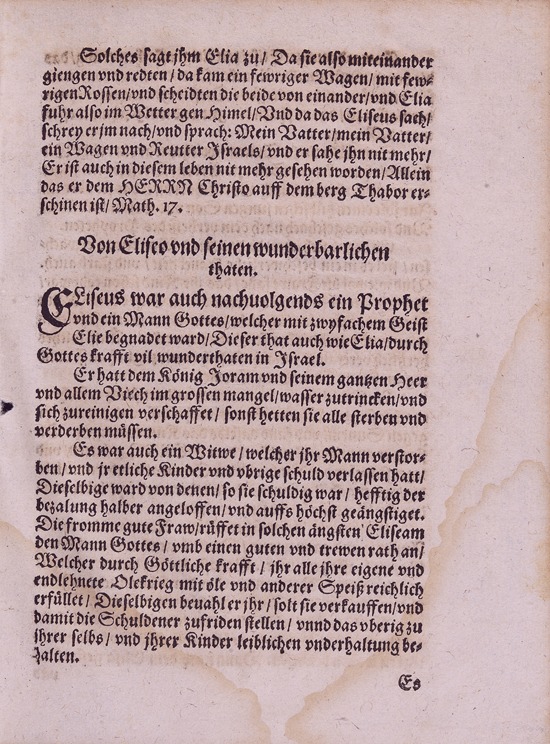 Solches sagt jhm Elia zu/ Da sie also miteinander
giengen vnd redten/ da kam ein fewriger Wagen/ mit few-
rigen Rossen/ vnd scheidten die beide von einander/ vnd Elia
fuhr also im Wetter gen Himel/ Vnd da das Eliseus sach/
schrey er jm nach/ vnd sprach: Mein Vatter/ mein Vatter/
ein Wagen vnd Reutter Jsraels/ vnd er sahe jhn nit mehr/
Er ist auch in diesem leben nit mehr gesehen worden/ Allein
das er dem HERRN Christo auff dem berg Thabor er-
schinen ist/ Math. 17.
Von Eliseo vnd seinen wunderbarlichen
thaten.
ELiseus war auch nachuolgends ein Prophet
vnd ein Mann Gottes/ welcher mit zwyfachem Geist
Elie begnadet ward/ Dieser that auch wie Elia/ durch
Gottes krafft vil wunderthaten in Jsrael.
Er hatt dem König Joram vnd seinem gantzen Heer
vnd allem Viech im grossen mangel/ wasser zutrincken/ vnd
sich zureinigen verschaffet/ sonst hetten sie alle sterben vnd
verderben müssen.
Es war auch ein Witwe/ welcher jhr Mann verstor-
ben/ vnd jr etliche Kinder vnd vbrige schuld verlassen hatt/
Dieselbige ward von denen/ so sie schuldig war/ hefftig der
bezalung halber angeloffen/ vnd auffs höchst geängstiget.
Die fromme gute Fraw/ rüffet in solchen ängsten Eliseam
den Mann Gottes/ vmb einen guten vnd trewen rath an/
Welcher durch Göttliche krafft/ jhr alle jhre eigene vnd
endlehnete Olekrieg mit öle vnd anderer Speiß reichlich
erfüllet/ Dieselbigen beuahl er jhr/ solt sie verkauffen/ vnd
damit die Schuldener zufriden stellen/ vnnd das vberig zu
jhrer selbs/ vnd jhrer Kinder leiblichen vnderhaltung be-
halten.
Es